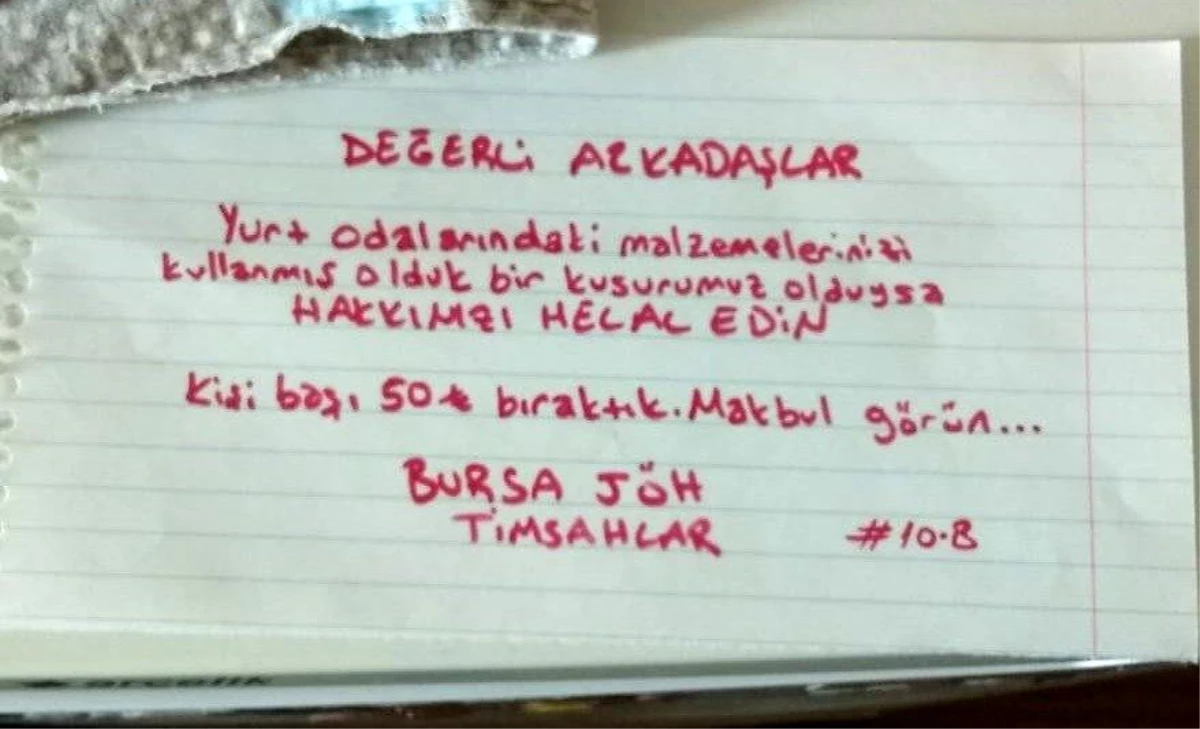 DEĞERLİ ARKADAŞLAR
Yurt odalarındaki malzemelerinizi
kullanmış olduk bir kusurumuz olduysa
HAKKIMZI HELAL EDİN
Kişi başı 50 ₺ bıraktık. Makbul görün...
BURSA JÖH
TİMSAHLAR #10.B
arçelik